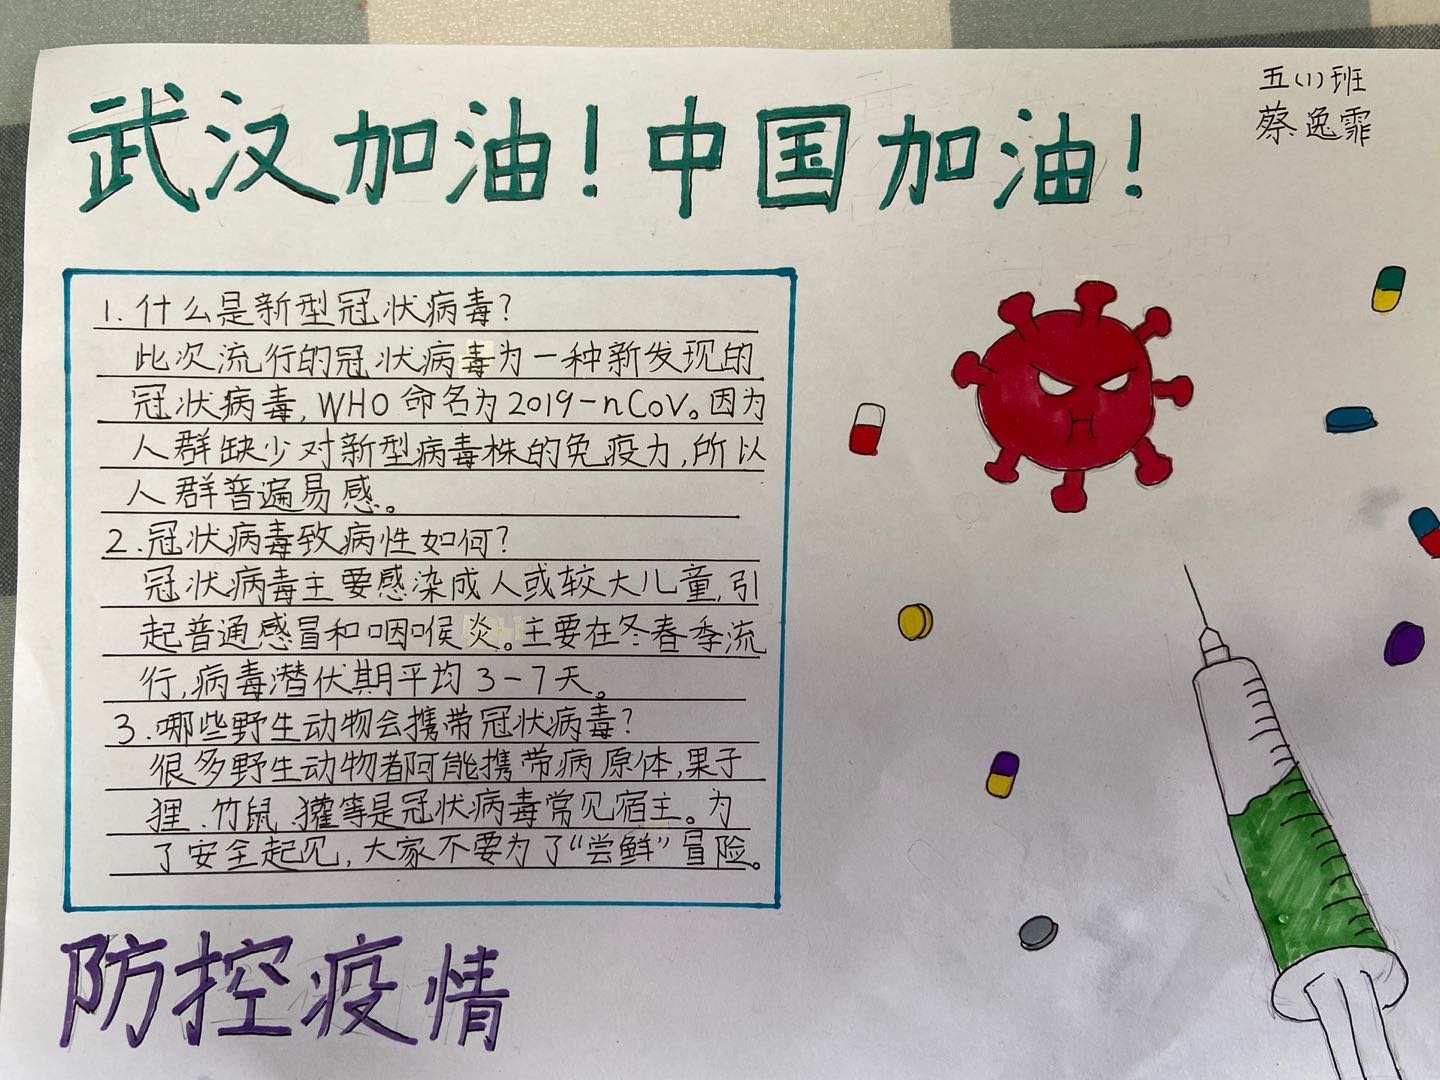 武汉加油！中国加油！
五(1)班
蔡逸霏
1.什么是新型冠状病毒？
此次流行的冠状病毒为一种新发现的
冠状病毒，WHO命名为2019-nCoV。因为
人群缺少对新型病毒株的免疫力，所以
人群普遍易感。
2.冠状病毒致病性如何？
冠状病毒主要感染成人或较大儿童，引
起普通感冒和咽喉炎。主要在冬春季流
行，病毒潜伏期平均3-7天。
3.哪些野生动物会携带冠状病毒？
很多野生动物都可能携带病原体，果子
狸、竹鼠、獾等是冠状病毒常见宿主。为
了安全起见，大家不要为了“尝鲜”冒险。
防控疫情